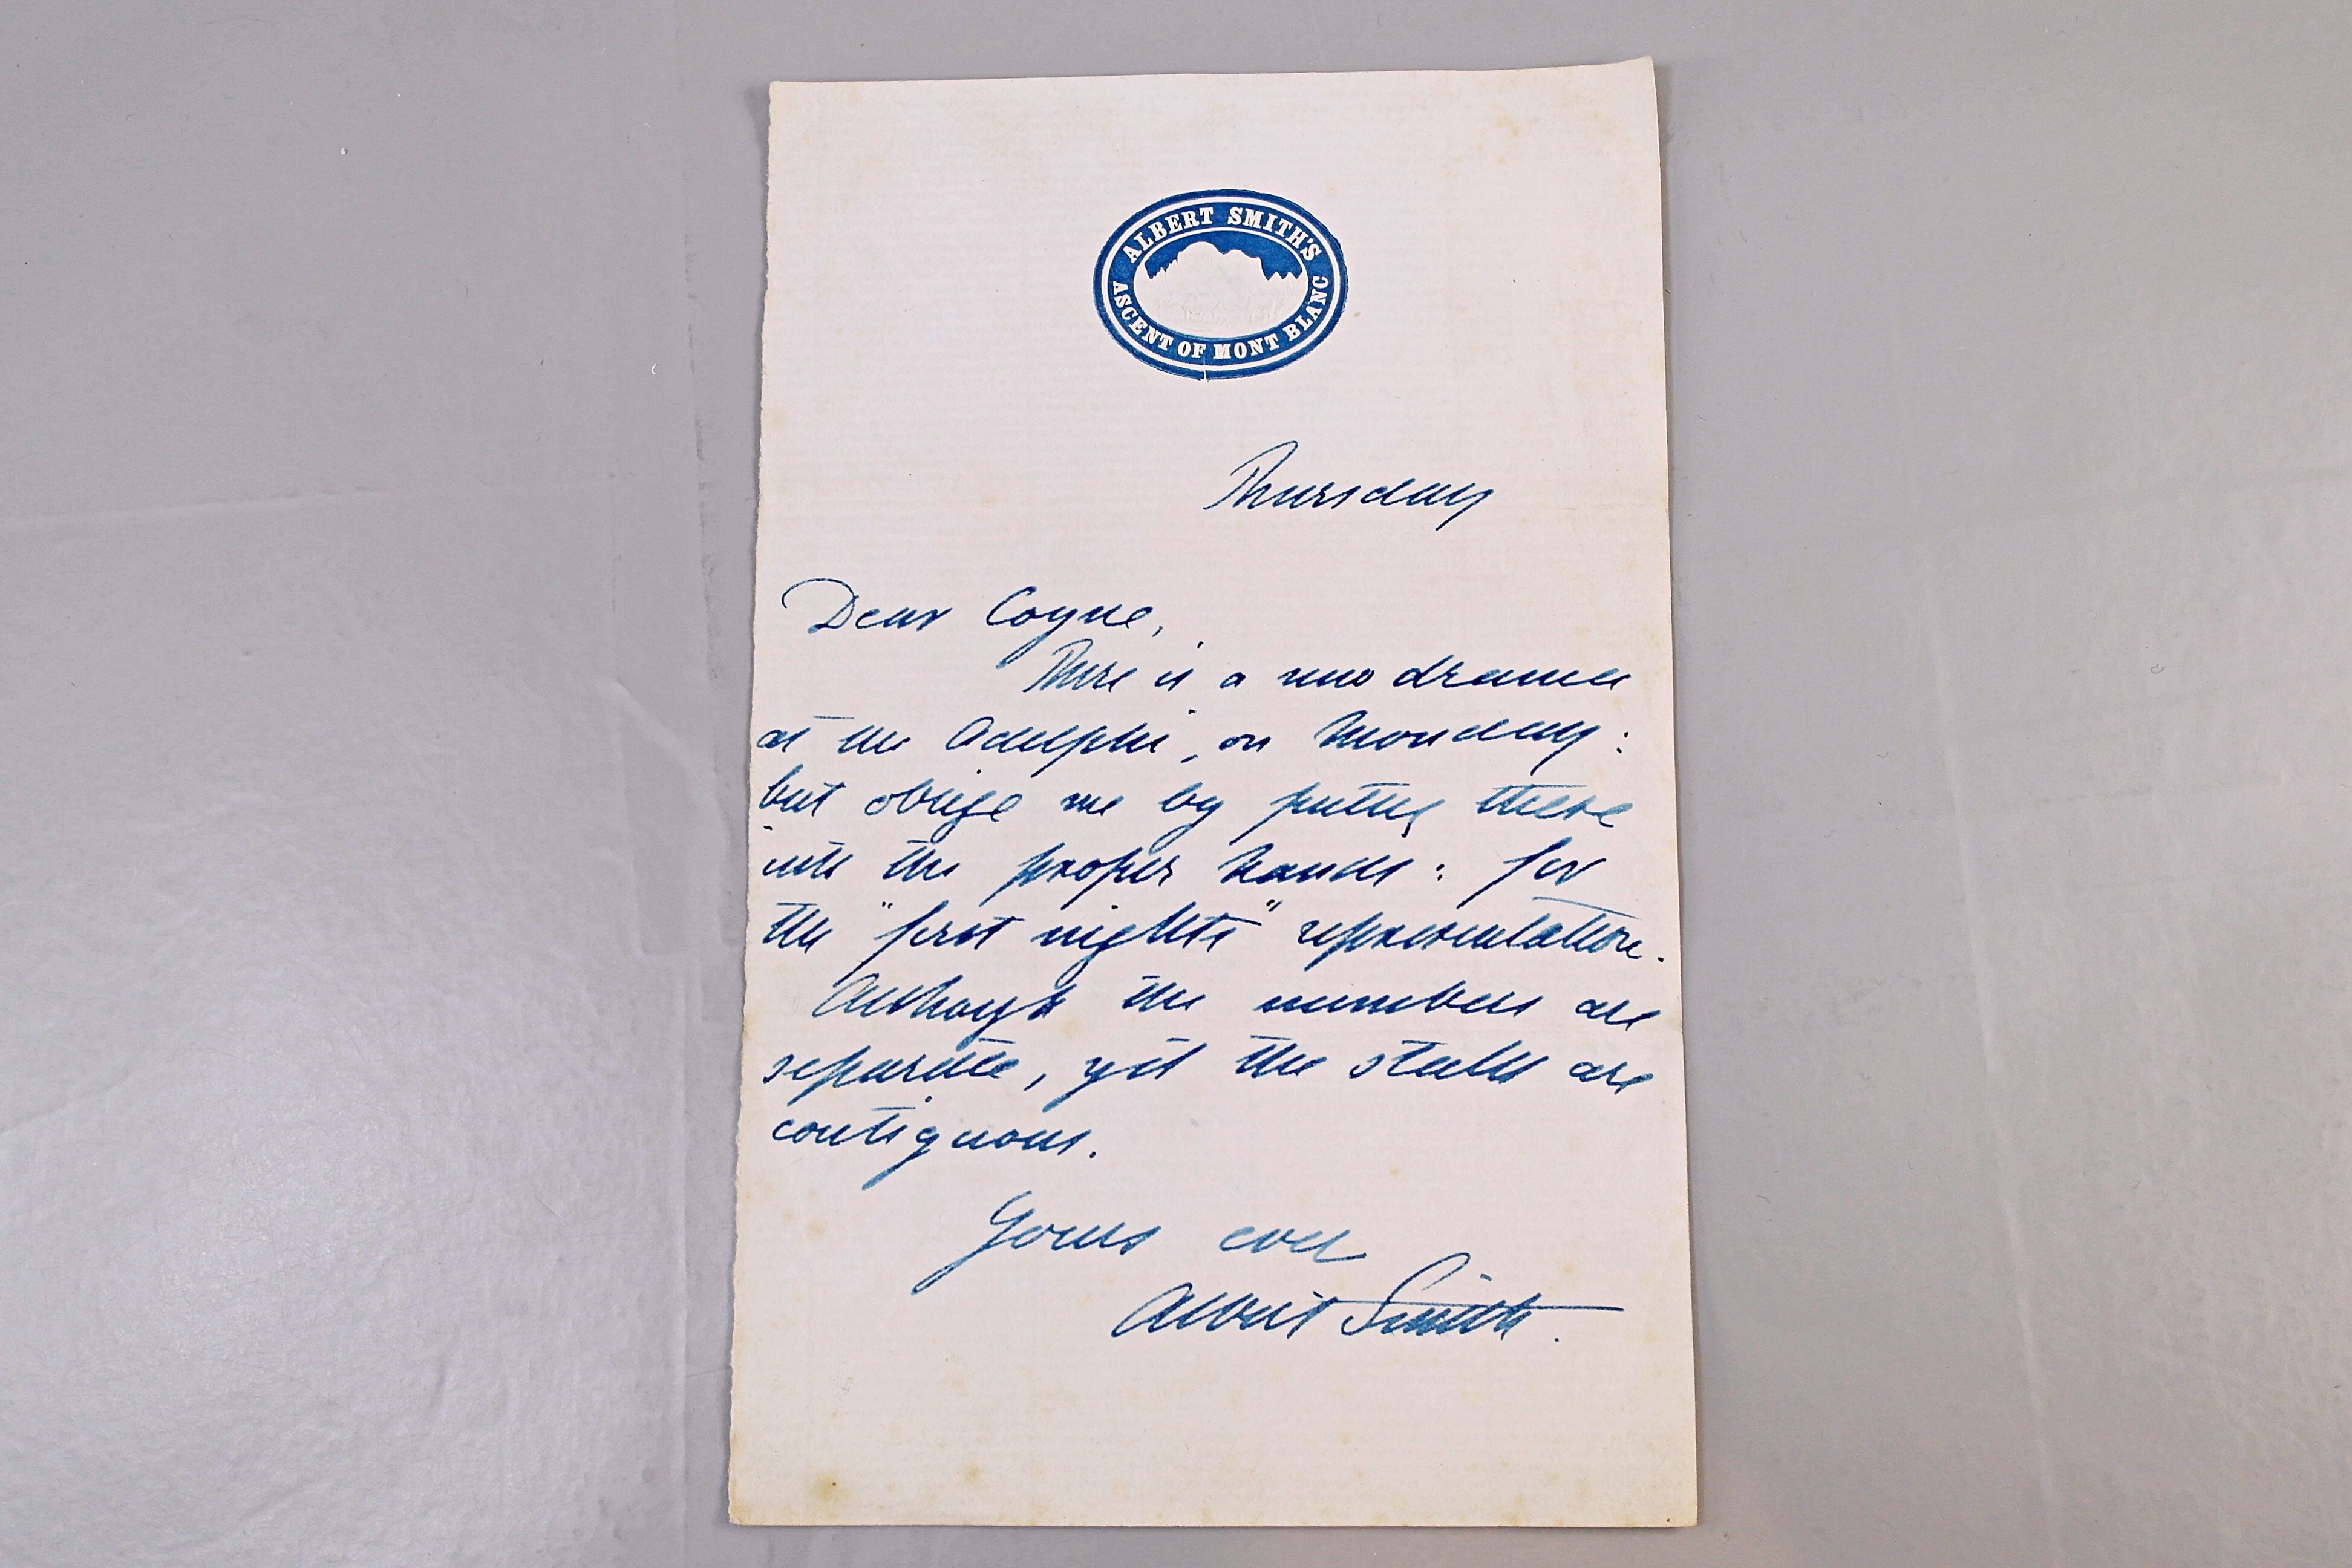 ALBERT SMITH'S
ASCENT OF MONT BLANC
Thursday
Dear Coyne,
There is a new drama
at the Adelphi, on Monday:
but oblige me by putting these
into the proper hands: for
the "first nights" representation.
Although the numbers are
separate, yet the stalls are
contiguous.
Yours ever
Albert Smith.